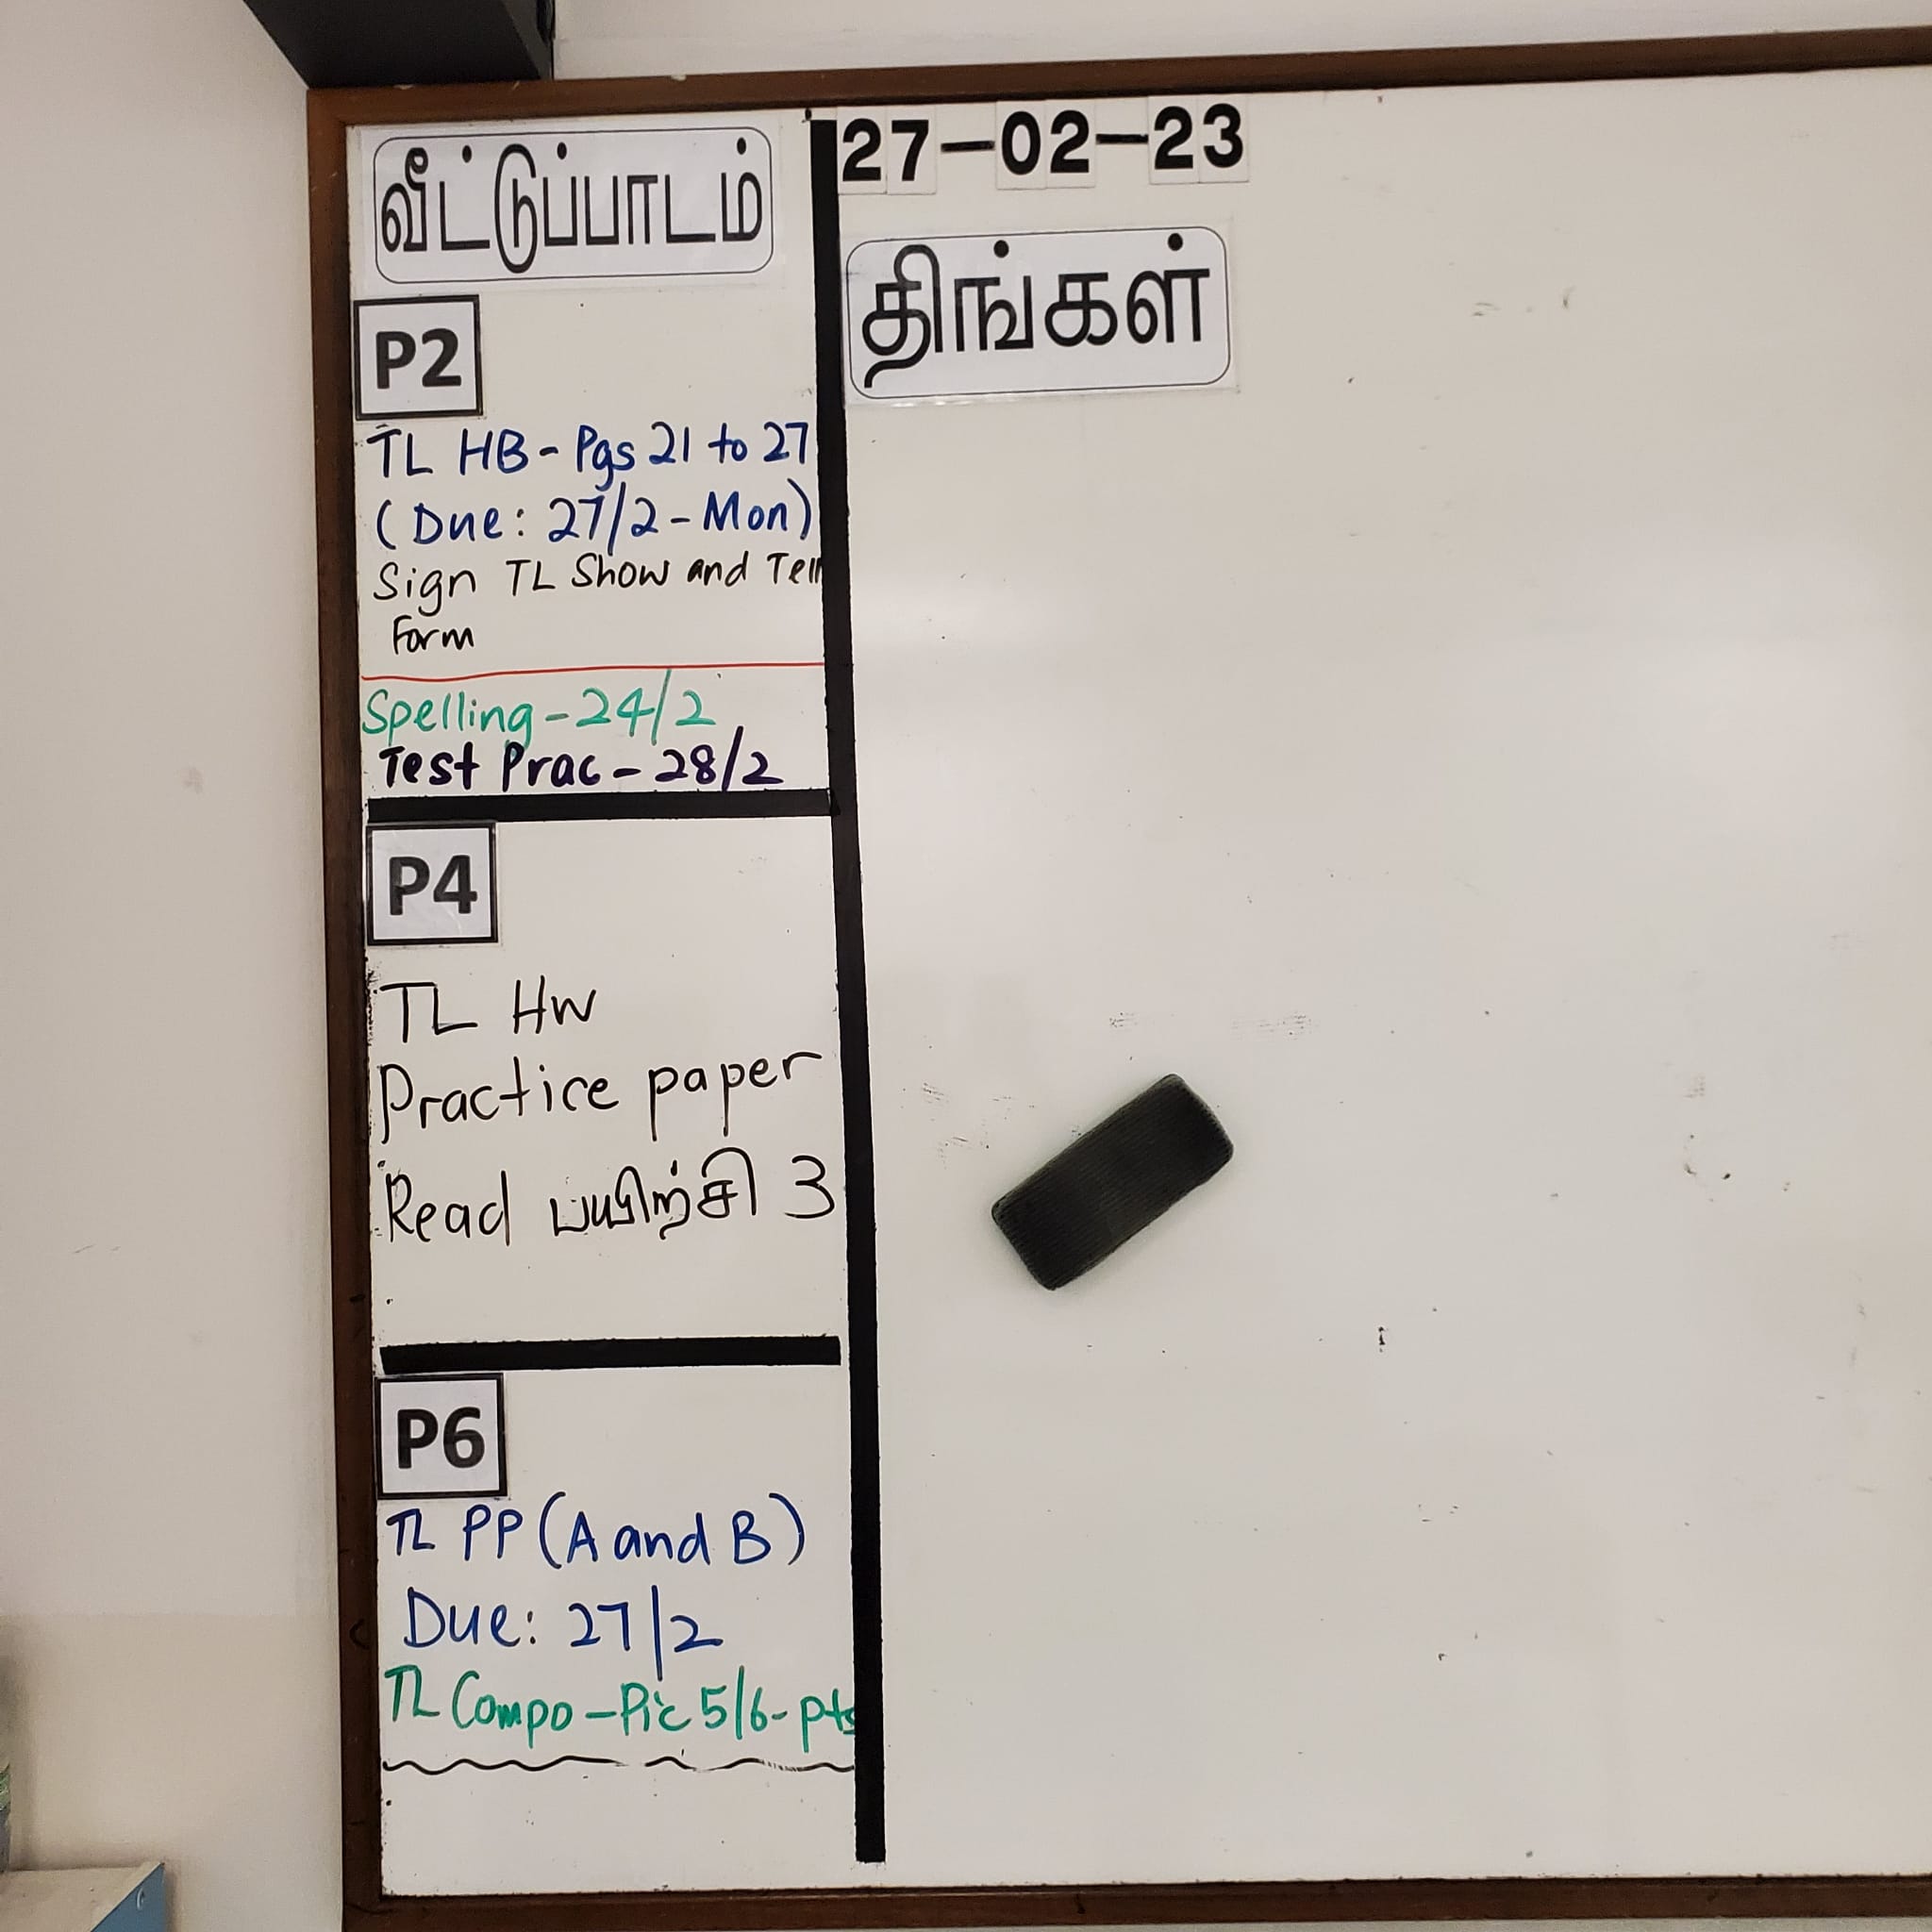 வீட்டுப்பாடம்
P2
TL HB - Pgs 21 to 27
(Due: 27/2 - Mon)
Sign TL Show and Tell
Form
Spelling - 24/2
Test Prac - 28/2
P4
TL HW
Practice paper
Read பயிற்சி 3
P6
TL PP (A and B)
Due: 27/2
TL Compo - Pic 5/6 - pts
27-02-23
திங்கள்